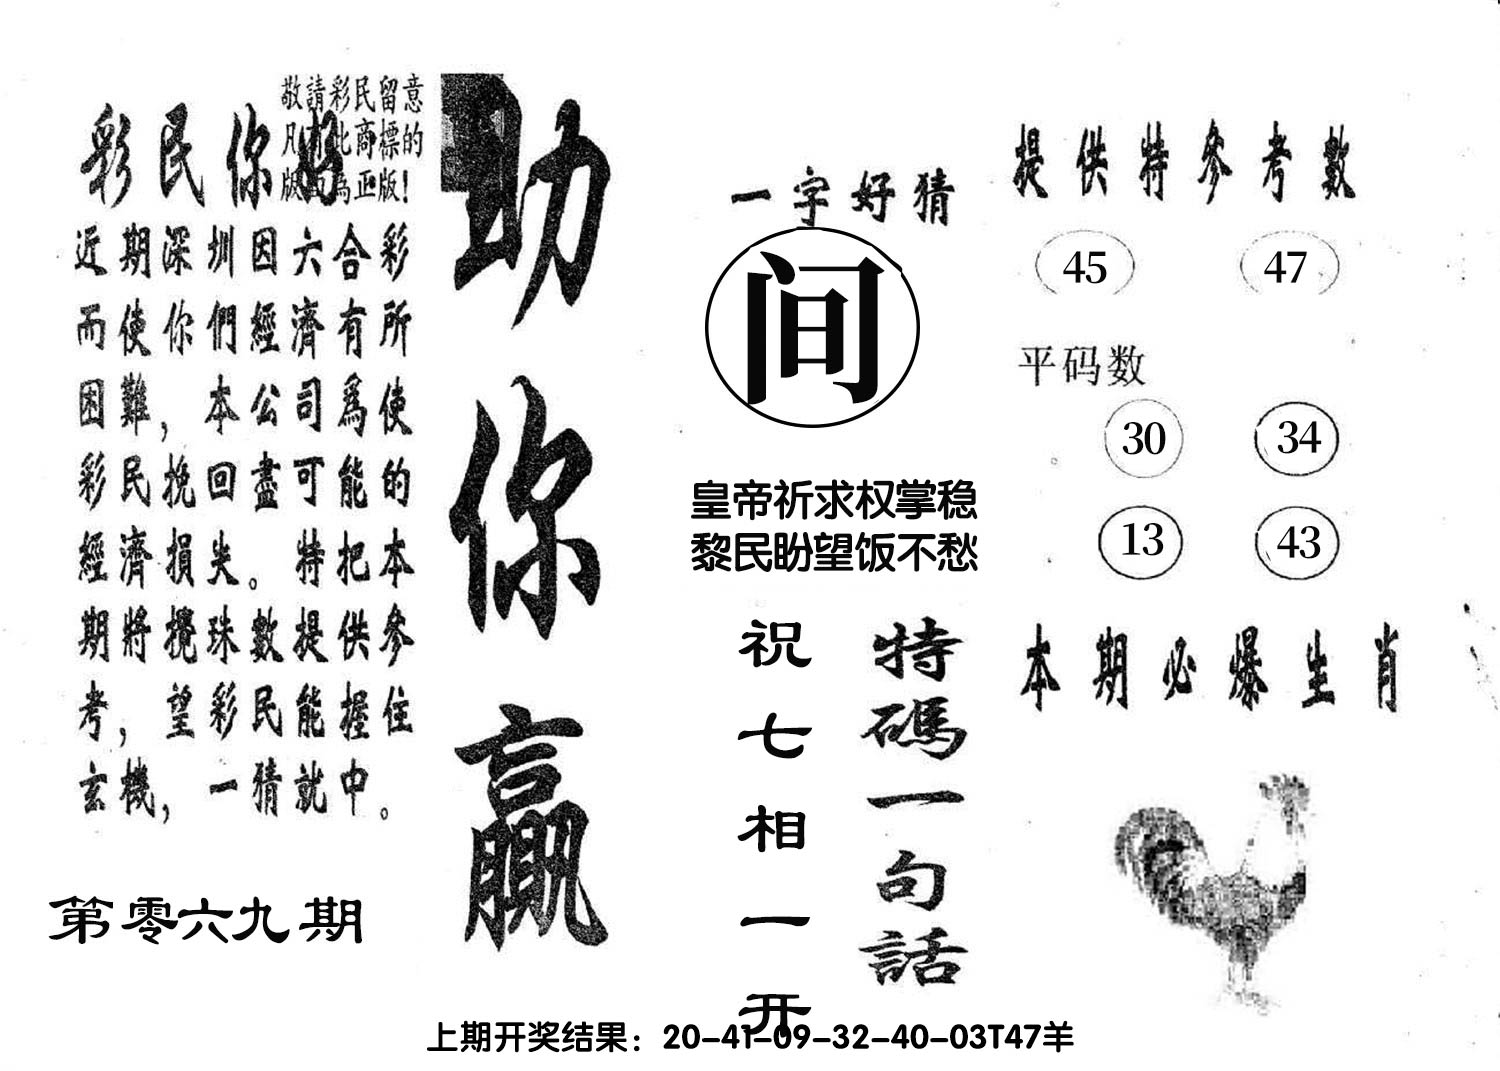 敬請彩民留意
凡有此商標的
版面為正版!
彩民你好
近期深圳因六合彩
而使你們經濟有所
困難，本公司爲使
彩民挽回盡可能的
經濟損失。特把本
期將攪珠數提供參
考，望彩民能握住
玄機，一猜就中。
第零六九期
助你贏
一字好猜
间
皇帝祈求权掌稳
黎民盼望饭不愁
特碼一句話
祝七相一开
提供特參考數
45 47
平码数
30 34
13 43
本期必爆生肖
上期开奖结果：20-41-09-32-40-03T47羊